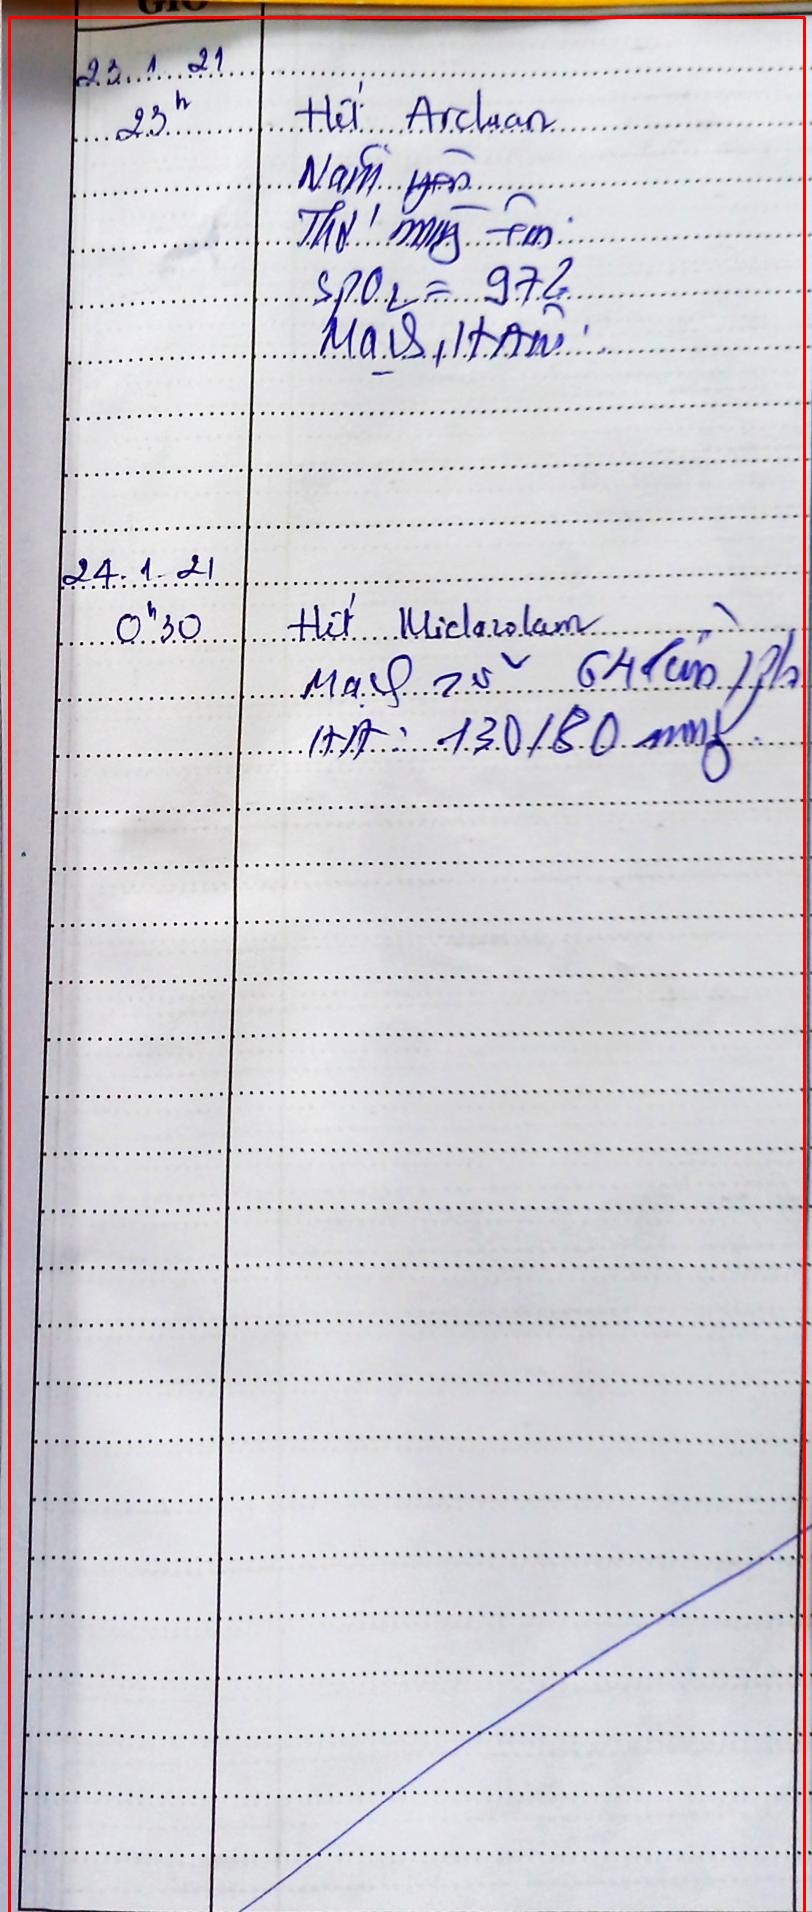 GIỜ
23.1.21
23h Hết Arduan
Nằm yên
Thở máy êm
SPO2 = 97%
Mạch, HA ổn
24.1.21
0h30 Hết Midazolam
Mạch rõ 64 lần/ph
HA: 130/80 mmHg